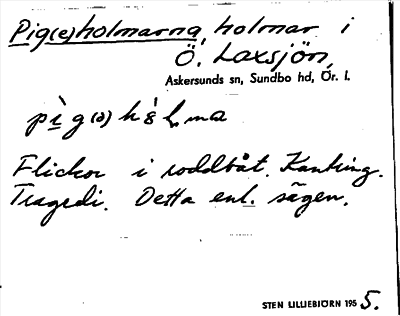 Pig(e)holmarna, holmar i
Ö. Laxsjön,
Askersunds sn, Sundbo hd, Ör. l.
Flickor i roddbåt. Kantring.
Tragedi. Detta enl. sägen.
STEN LILLIEBJÖRN 1955.